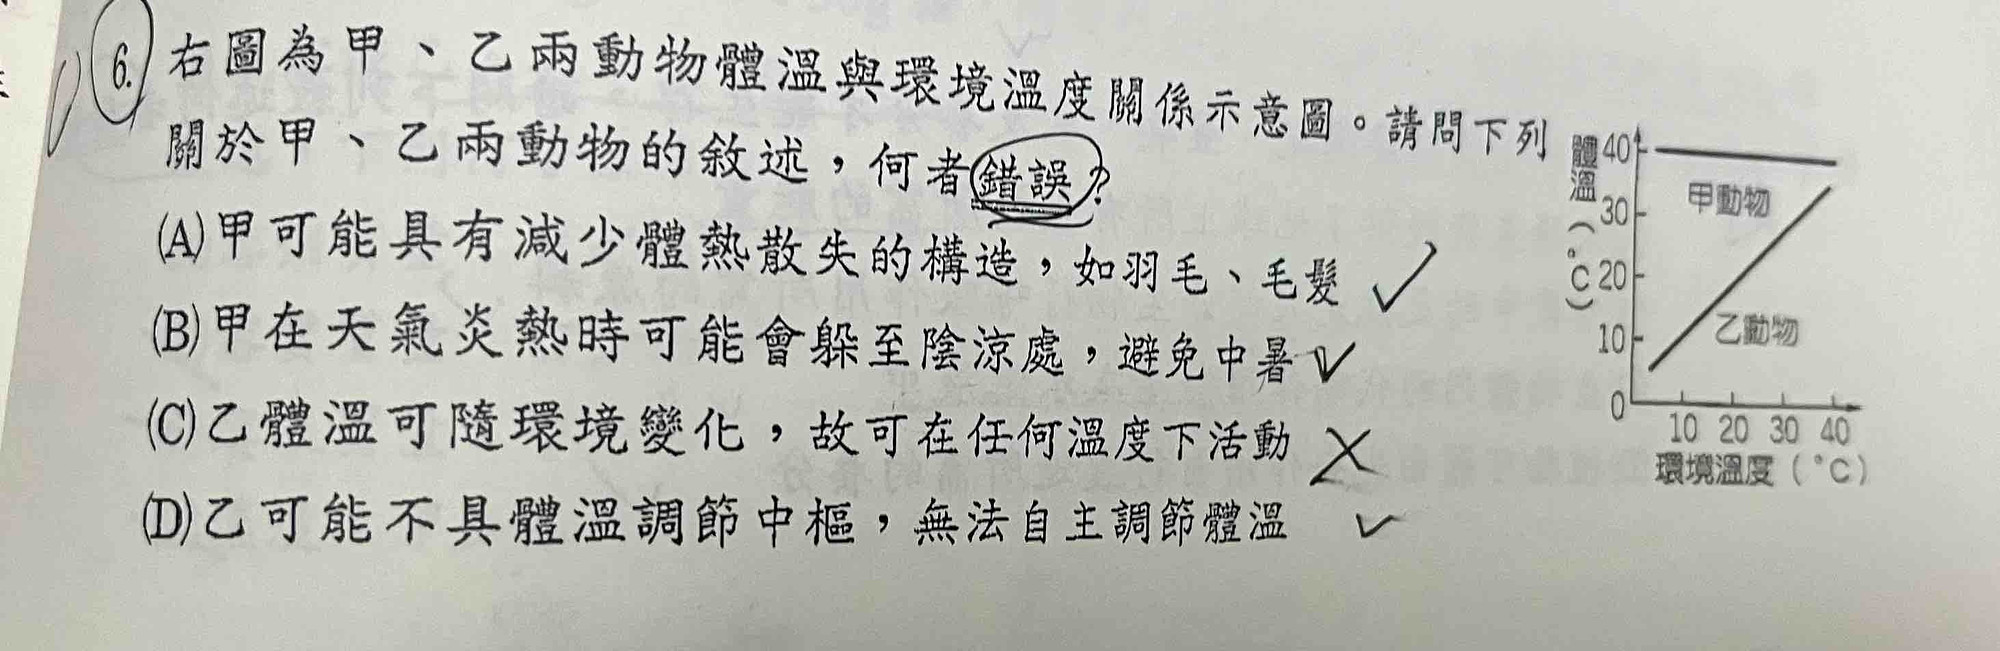 6. 右圖為甲、乙兩動物體溫與環境溫度關係示意圖。請問下列
關於甲、乙兩動物的敘述，何者錯誤？
(A)甲可能具有減少體熱散失的構造，如羽毛、毛髮
(B)甲在天氣炎熱時可能會躲至陰涼處，避免中暑
(C)乙體溫可隨環境變化，故可在任何溫度下活動
(D)乙可能不具體溫調節中樞，無法自主調節體溫
體溫(°C)
40
30
20
10
0
甲動物
乙動物
10 20 30 40
環境溫度(°C)